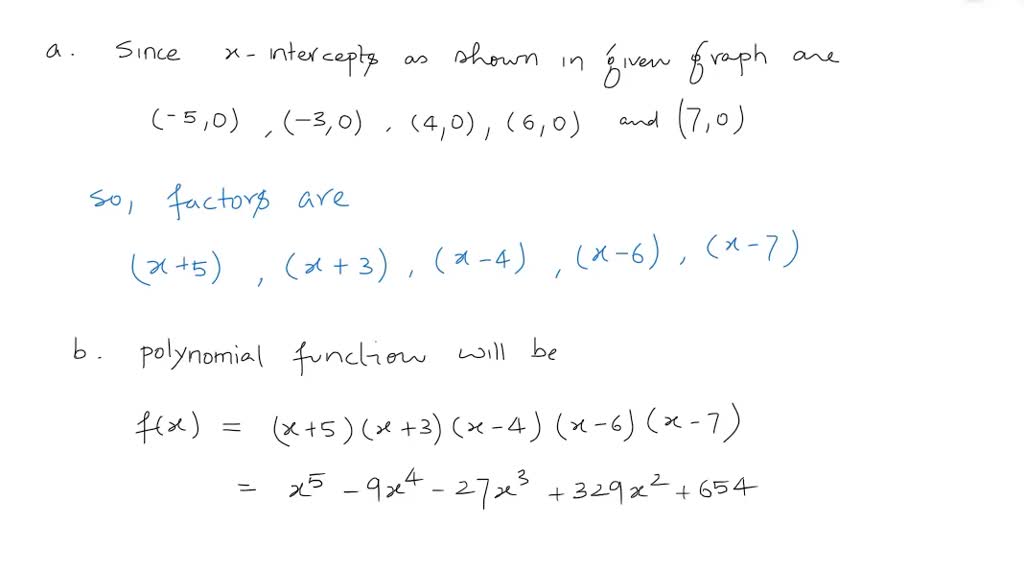 a. Since x-intercepts as shown in given graph are
(-5,0) , (-3,0) , (4,0) , (6,0) and (7,0)
so, factors are
(x+5) , (x+3) , (x-4) , (x-6) , (x-7)
b. polynomial function will be
f(x) = (x+5)(x+3)(x-4)(x-6)(x-7)
= x⁵ - 9x⁴ - 27x³ + 329x² + 654